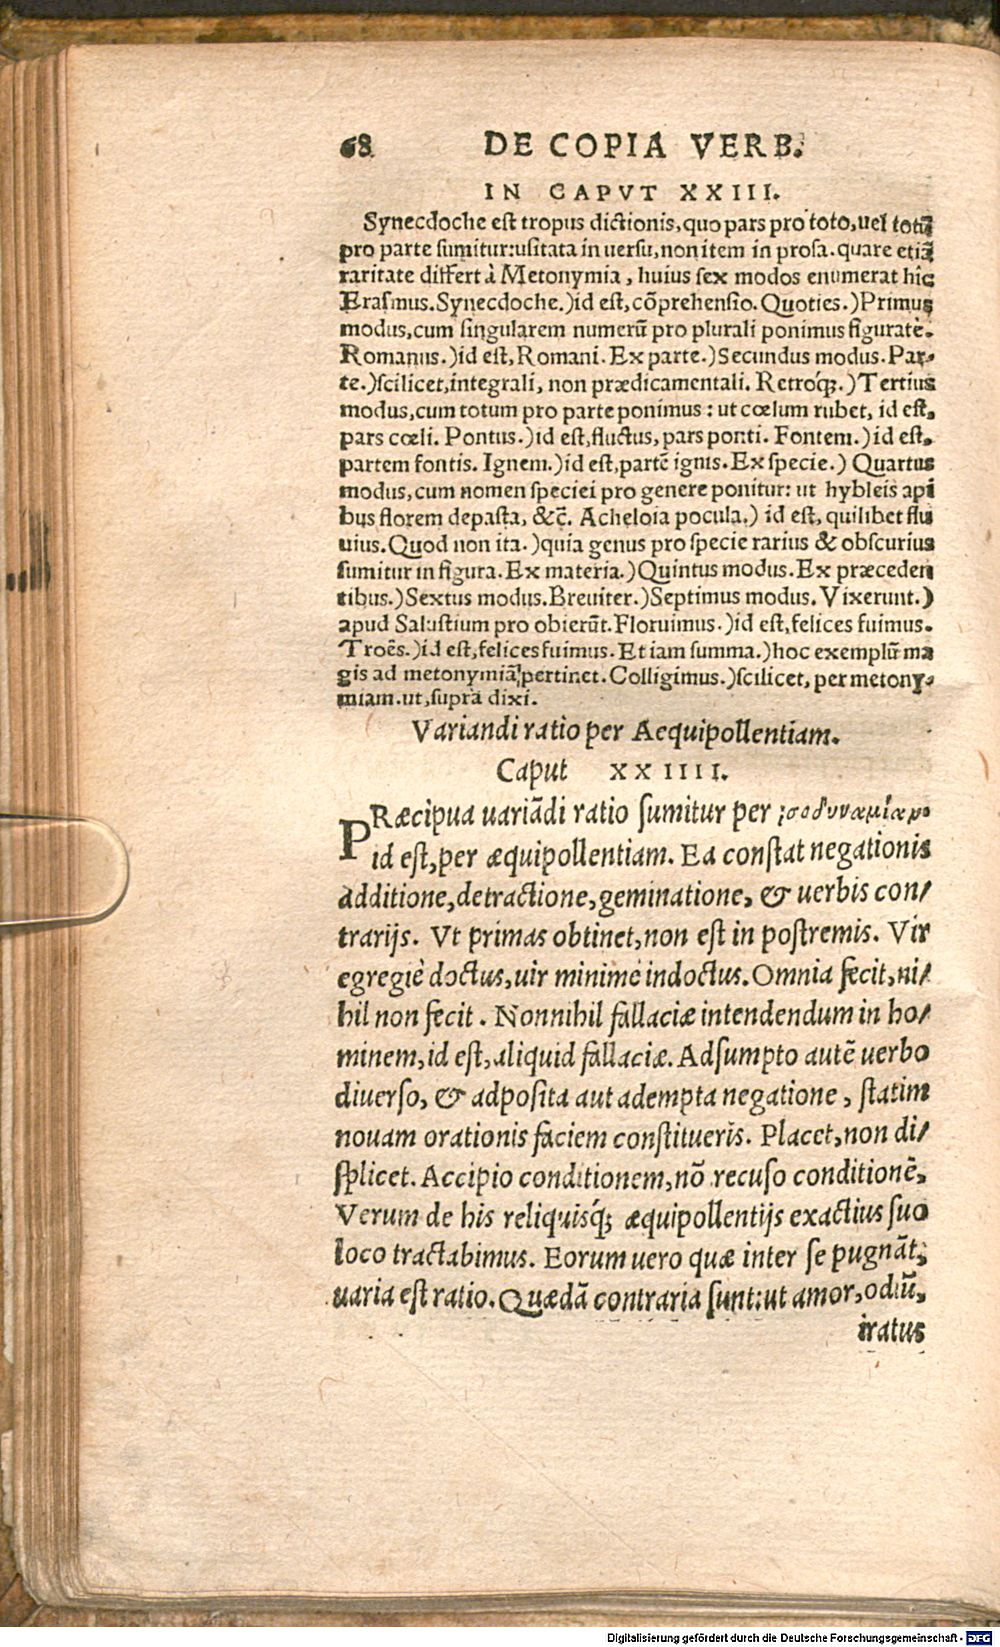 68 DE COPIA VERB.
IN CAPVT XXIII.
Synecdoche est tropus dictionis, quo pars pro toto, uel totũ
pro parte sumitur: usitata in uersu, non item in prosa. quare etiã
raritate differt à Metonymia, huius sex modos enumerat hîc
Erasmus. Synecdoche.) id est, cõprehensio. Quoties.) Primus
modus, cum singularem numerũ pro plurali ponimus figuratè.
Romanus.) id est, Romani. Ex parte.) Secundus modus. Par-
te.) scilicet, integrali, non prædicamentali. Retróq;.) Tertius
modus, cum totum pro parte ponimus: ut cœlum rubet, id est,
pars cœli. Pontus.) id est, fluctus, pars ponti. Fontem.) id est,
partem fontis. Ignem.) id est, partẽ ignis. Ex specie.) Quartus
modus, cum nomen speciei pro genere ponitur: ut hybleis api
bus florem depasta, &c̃. Acheloia pocula.) id est, quilibet flu
uius. Quod non ita.) quia genus pro specie rarius & obscurius
sumitur in figura. Ex materia.) Quintus modus. Ex præceden
tibus.) Sextus modus. Breuiter.) Septimus modus. Vixerunt.)
apud Salustium pro obierũt. Floruimus.) id est, felices fuimus.
Troẽs.) id est, felices fuimus. Etiam summa.) hoc exemplũ ma
gis ad metonymiã pertinet. Colligimus.) scilicet, per metony-
miam. ut, suprà dixi.
Variandi ratio per Aequipollentiam.
Caput XXIIII.
PRæcipua uariãdi ratio sumitur per ἰσοδυναμίαν,
id est, per æquipollentiam. Ea constat negationis
additione, detractione, geminatione, & uerbis con/
trarijs. Vt primas obtinet, non est in postremis. Vir
egregiè doctus, uir minimè indoctus. Omnia fecit, ni/
hil non fecit. Nonnihil fallaciæ intendendum in ho/
minem, id est, aliquid fallaciæ. Adsumpto autẽ uerbo
diuerso, & adposita aut adempta negatione, statim
nouam orationis faciem constitueris. Placet, non di/
splicet. Accipio conditionem, nõ recuso conditionẽ,
Verum de his reliquisq́; æquipollentijs exactius suo
loco tractabimus. Eorum uero quæ inter se pugnãt,
uaria est ratio. Quædã contraria sunt: ut amor, odiũ,
iratus
Digitalisierung gefördert durch die Deutsche Forschungsgemeinschaft - DFG